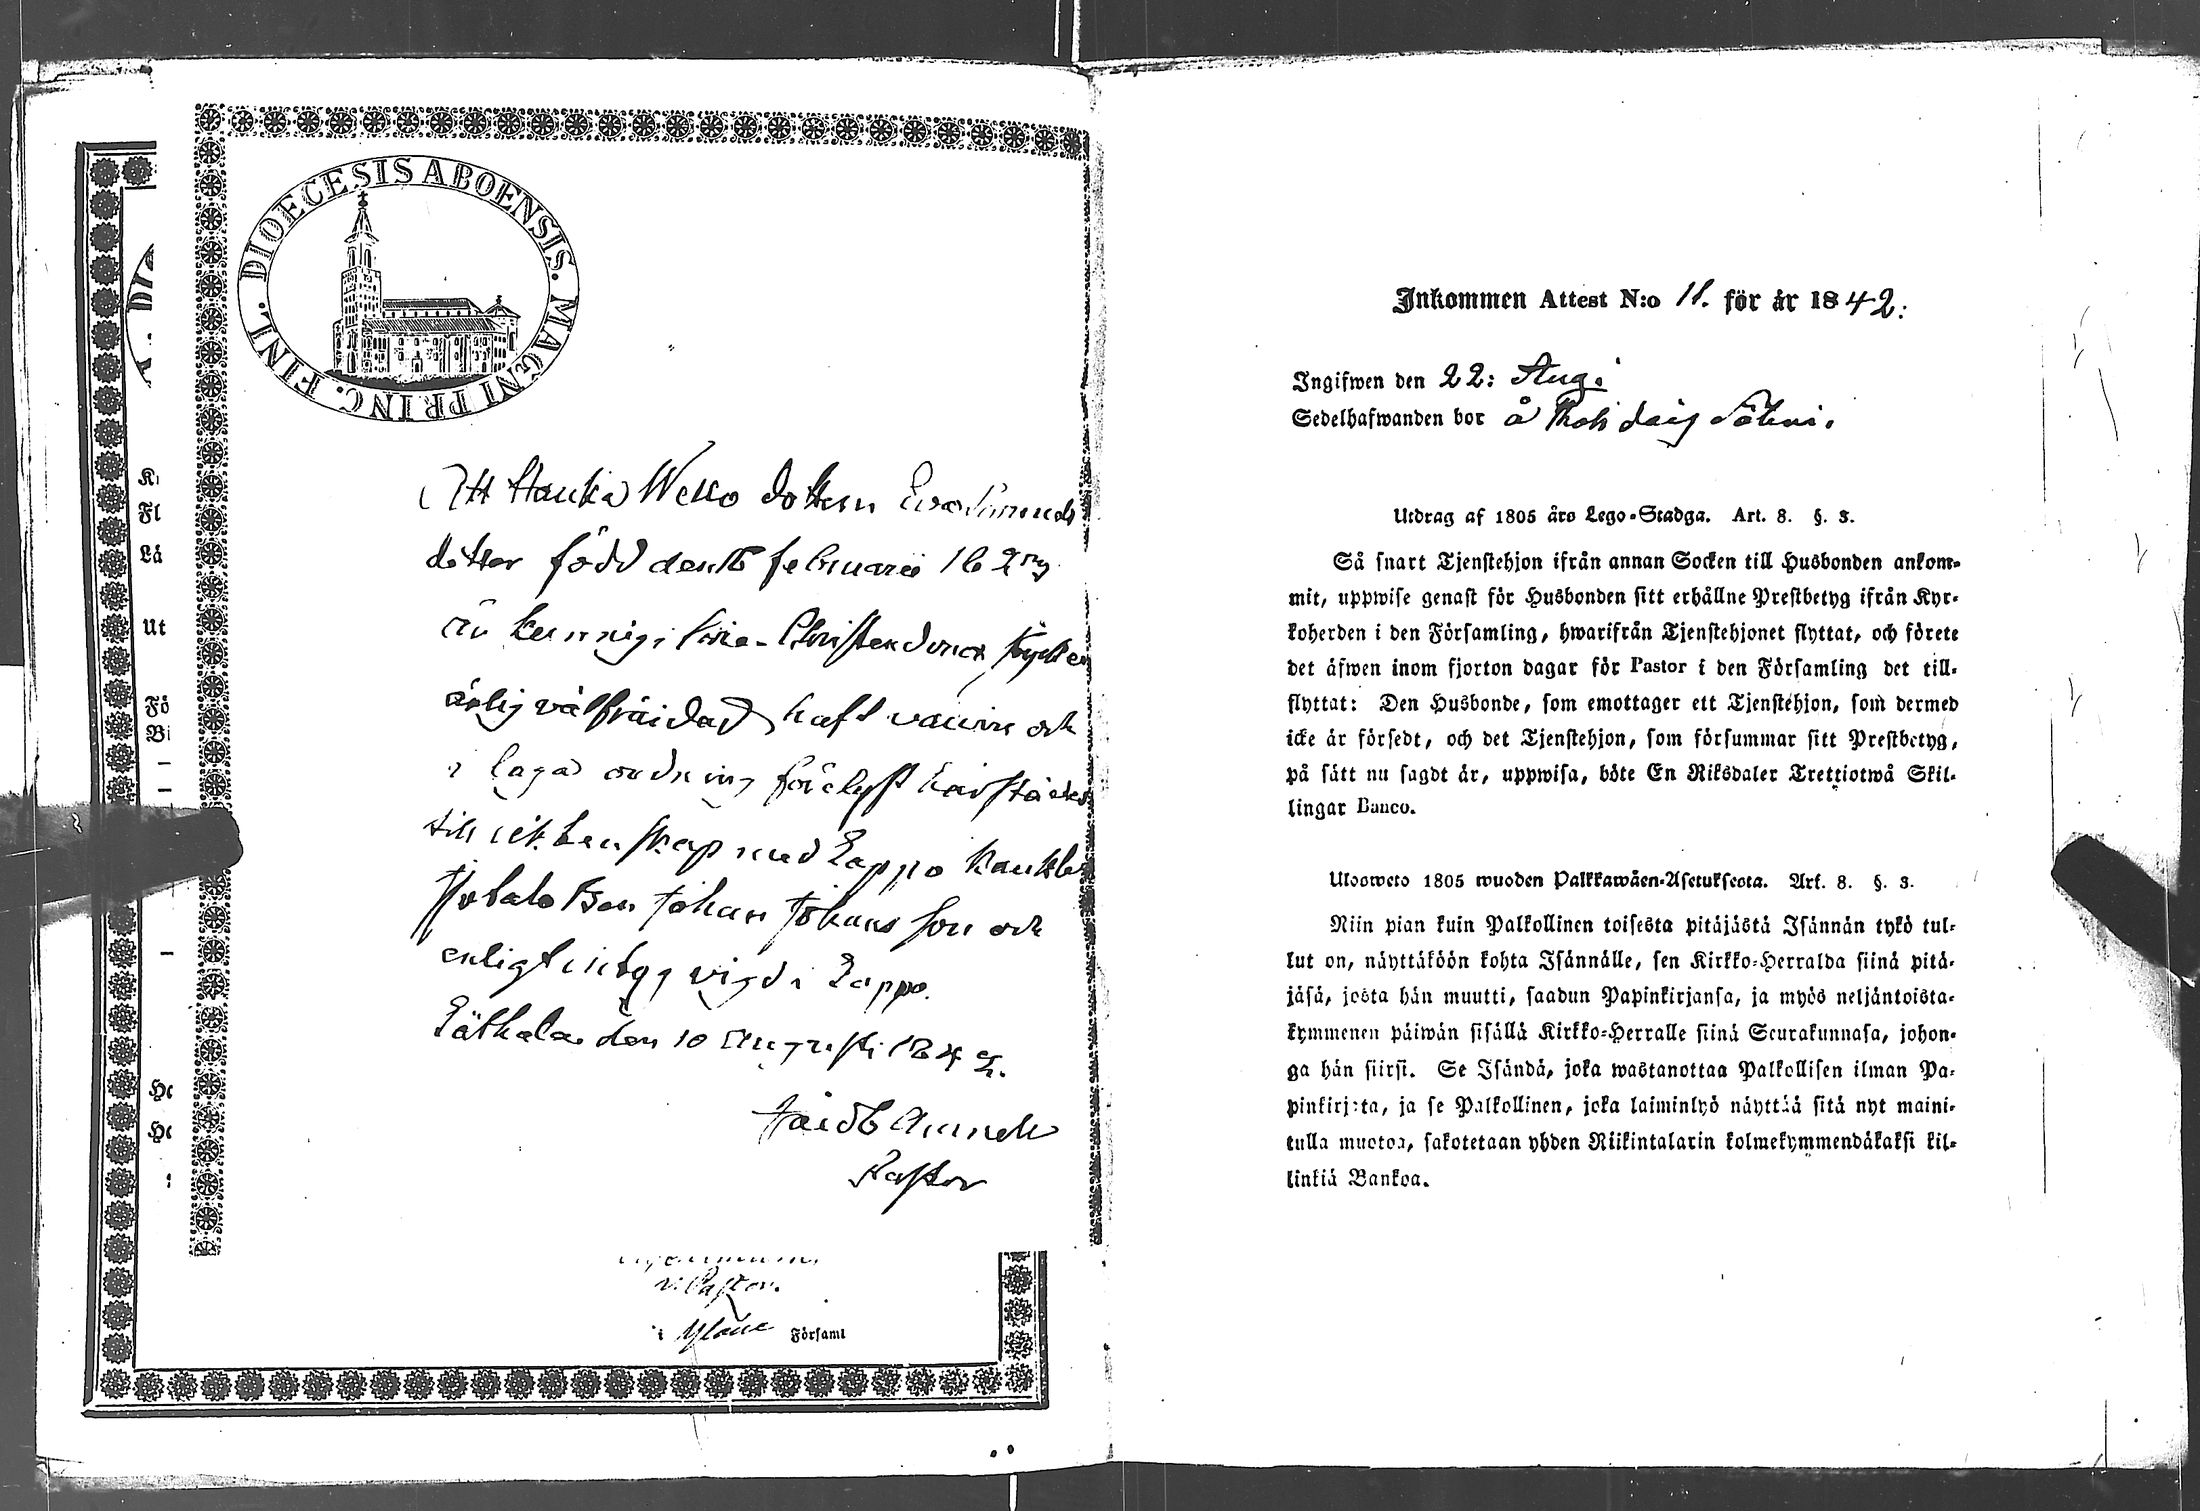 DIOECESIS ABOENSIS. MAGNI PRINC. FINL.
Att Hauka dottern Eva
dotter född den februarii
är kunnig i sine Christendoms stycken
ärlig väl fräjdad, haft och
i laga ordning förelyst härstädes
till ecktenskap med Lappo
Johan Johans son och
enligt intyg vigd i Lappo.
Låthala den 10 Augusti 1842.
Pastor
v. Pastor.
i Yläne Församl
K
Fl
Lå
Ut
Fö
Bi
He
He
Inkommen Attest N:o 11. för år 1842:
Ingifwen den 22: Aug:
Sedelhafwanden bor å
Utdrag af 1805 års Lego-Stadga. Art. 8. §. 3.
Så snart Tjenstehjon ifrån annan Socken till Husbonden ankom-
mit, uppwise genast för Husbonden sitt erhållne Prestbetyg ifrån Kyr-
koherden i den Församling, hwarifrån Tjenstehjonet flyttat, och förete
det äfwen inom fjorton dagar för Pastor i den Församling det till-
flyttat: Den Husbonde, som emottager ett Tjenstehjon, som dermed
icke är försedt, och det Tjenstehjon, som försummar sitt Prestbetyg,
på sätt nu sagdt är, uppwisa, böte En Riksdaler Trettiotwå Skil-
lingar Banco.
Ulosweto 1805 wuoden Palkkawäen-Asetuksesta. Art. 8. §. 3.
Niin pian kuin Palkollinen toisesta pitäjästä Isännän tykö tul-
lut on, näyttäköön kohta Isännälle, sen Kirkko-Herralda siinä pitä-
jäsä, josta hän muutti, saadun Papinkirjansa, ja myös neljäntoista-
kymmenen päiwän sisällä Kirkko-Herralle siinä Seurakunnasa, johon-
ga hän siirsi. Se Isändä, joka wastanottaa Palkollisen ilman Pa-
pinkirjata, ja se Palkollinen, joka laiminlyö näyttää sitä nyt maini-
tulla muotoa, sakotetaan yhden Riikintalarin kolmekymmendäkaksi kil-
linkiä Bankoa.